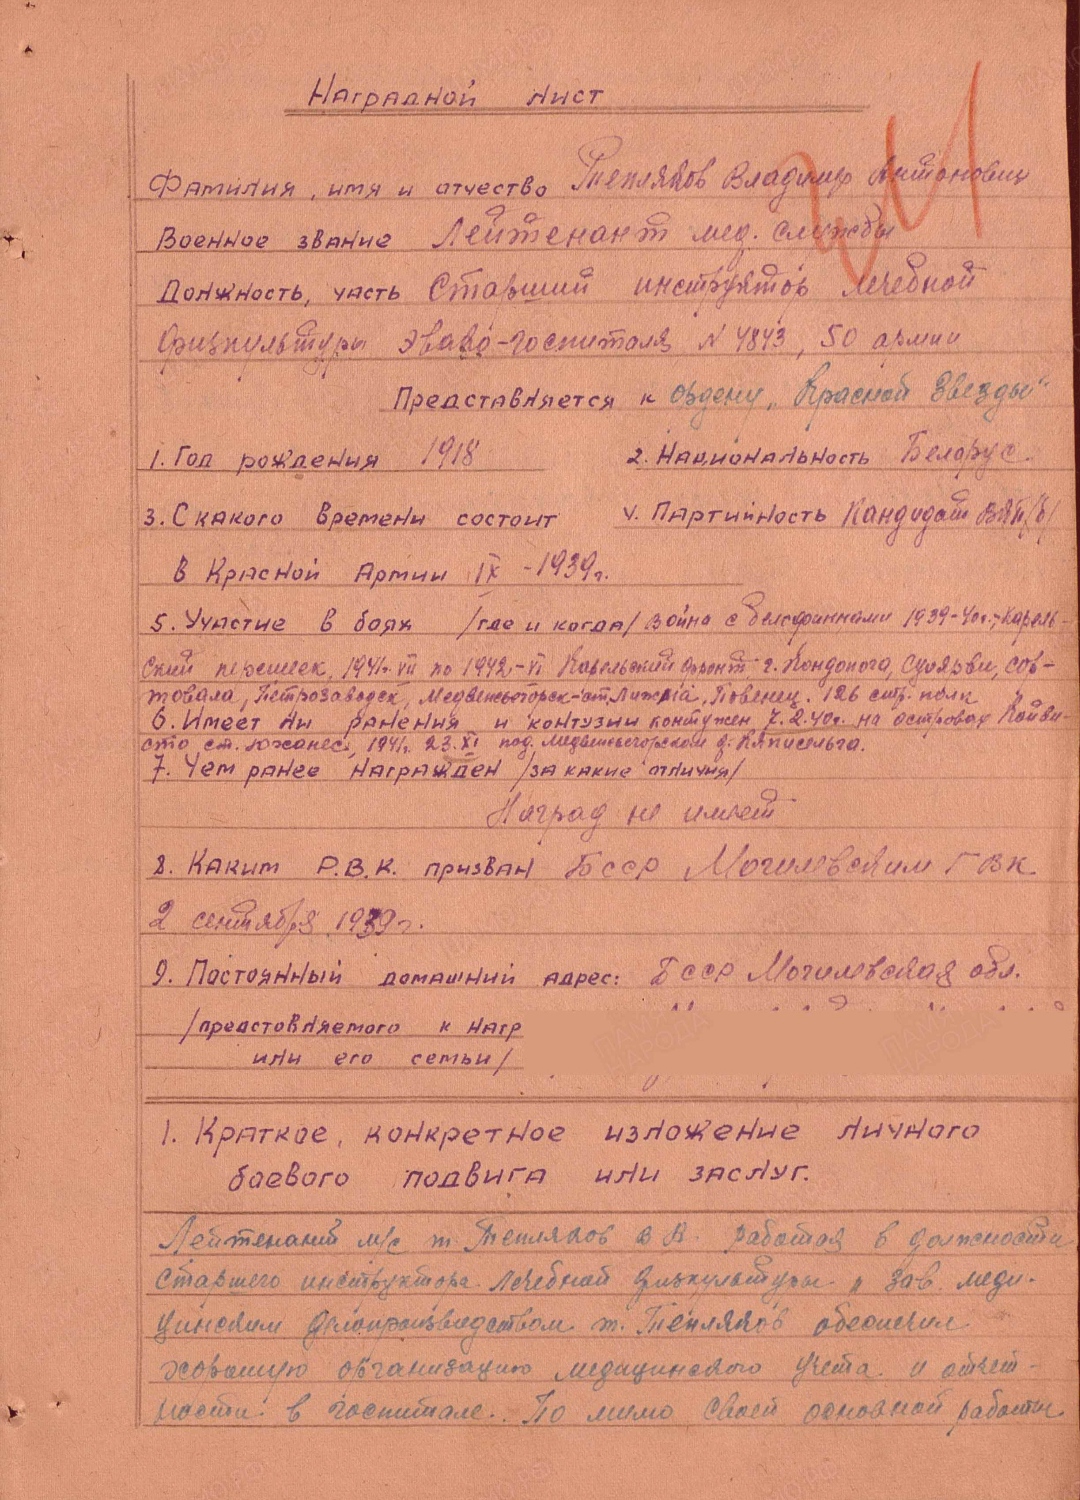 Наградной лист
Фамилия, имя и отчество Тепляков Владимир Антонович
Военное звание Лейтенант мед. службы
Должность, часть Старший инструктор лечебной
физкультуры Эвако-госпиталя N 4843, 50 армии
Представляется к ордену „Красной Звезды"
1. Год рождения 1918 2. Национальность Белорус.
3. С какого времени состоит 4. Партийность Кандидат ВКП/б/
в Красной Армии IX - 1939г.
5. Участие в боях /где и когда/ война с белофиннами 1939-40г.; Карель-
ский перешеек, 1941г. VII по 1942-VI Карельский фронт г. Кондопога, Суоярви, Сор-
товала, Петрозаводск, Медвежьегорск-ст. Лижма, Повенец. 126 стр. полк
6. Имеет ли ранения и контузии контужен 7.2.40г. на островах Койви-
сто ст. Иоханес, 1941г. 23.XI под Медвежьегорском д.
7. Чем ранее награжден /за какие отличия/
Наград не имеет
8. Каким Р.В.К. призван БССР Могилевским ГВК.
2 сентября 1939г.
9. Постоянный домашний адрес: БССР Могилевская обл.
/предстовляемого к нагр
или его семьи/
1. Краткое, конкретное изложение личного
боевого подвига или заслуг.
Лейтенант м/с т. Тепляков В А. работая в должности
старшего инструктора лечебной физкультуры и зав. меди-
цинским делопроизводством т. Тепляков обеспечил
хорошую организацию медицинского учета и отчет-
ности в госпитале. По мимо своей основной работы